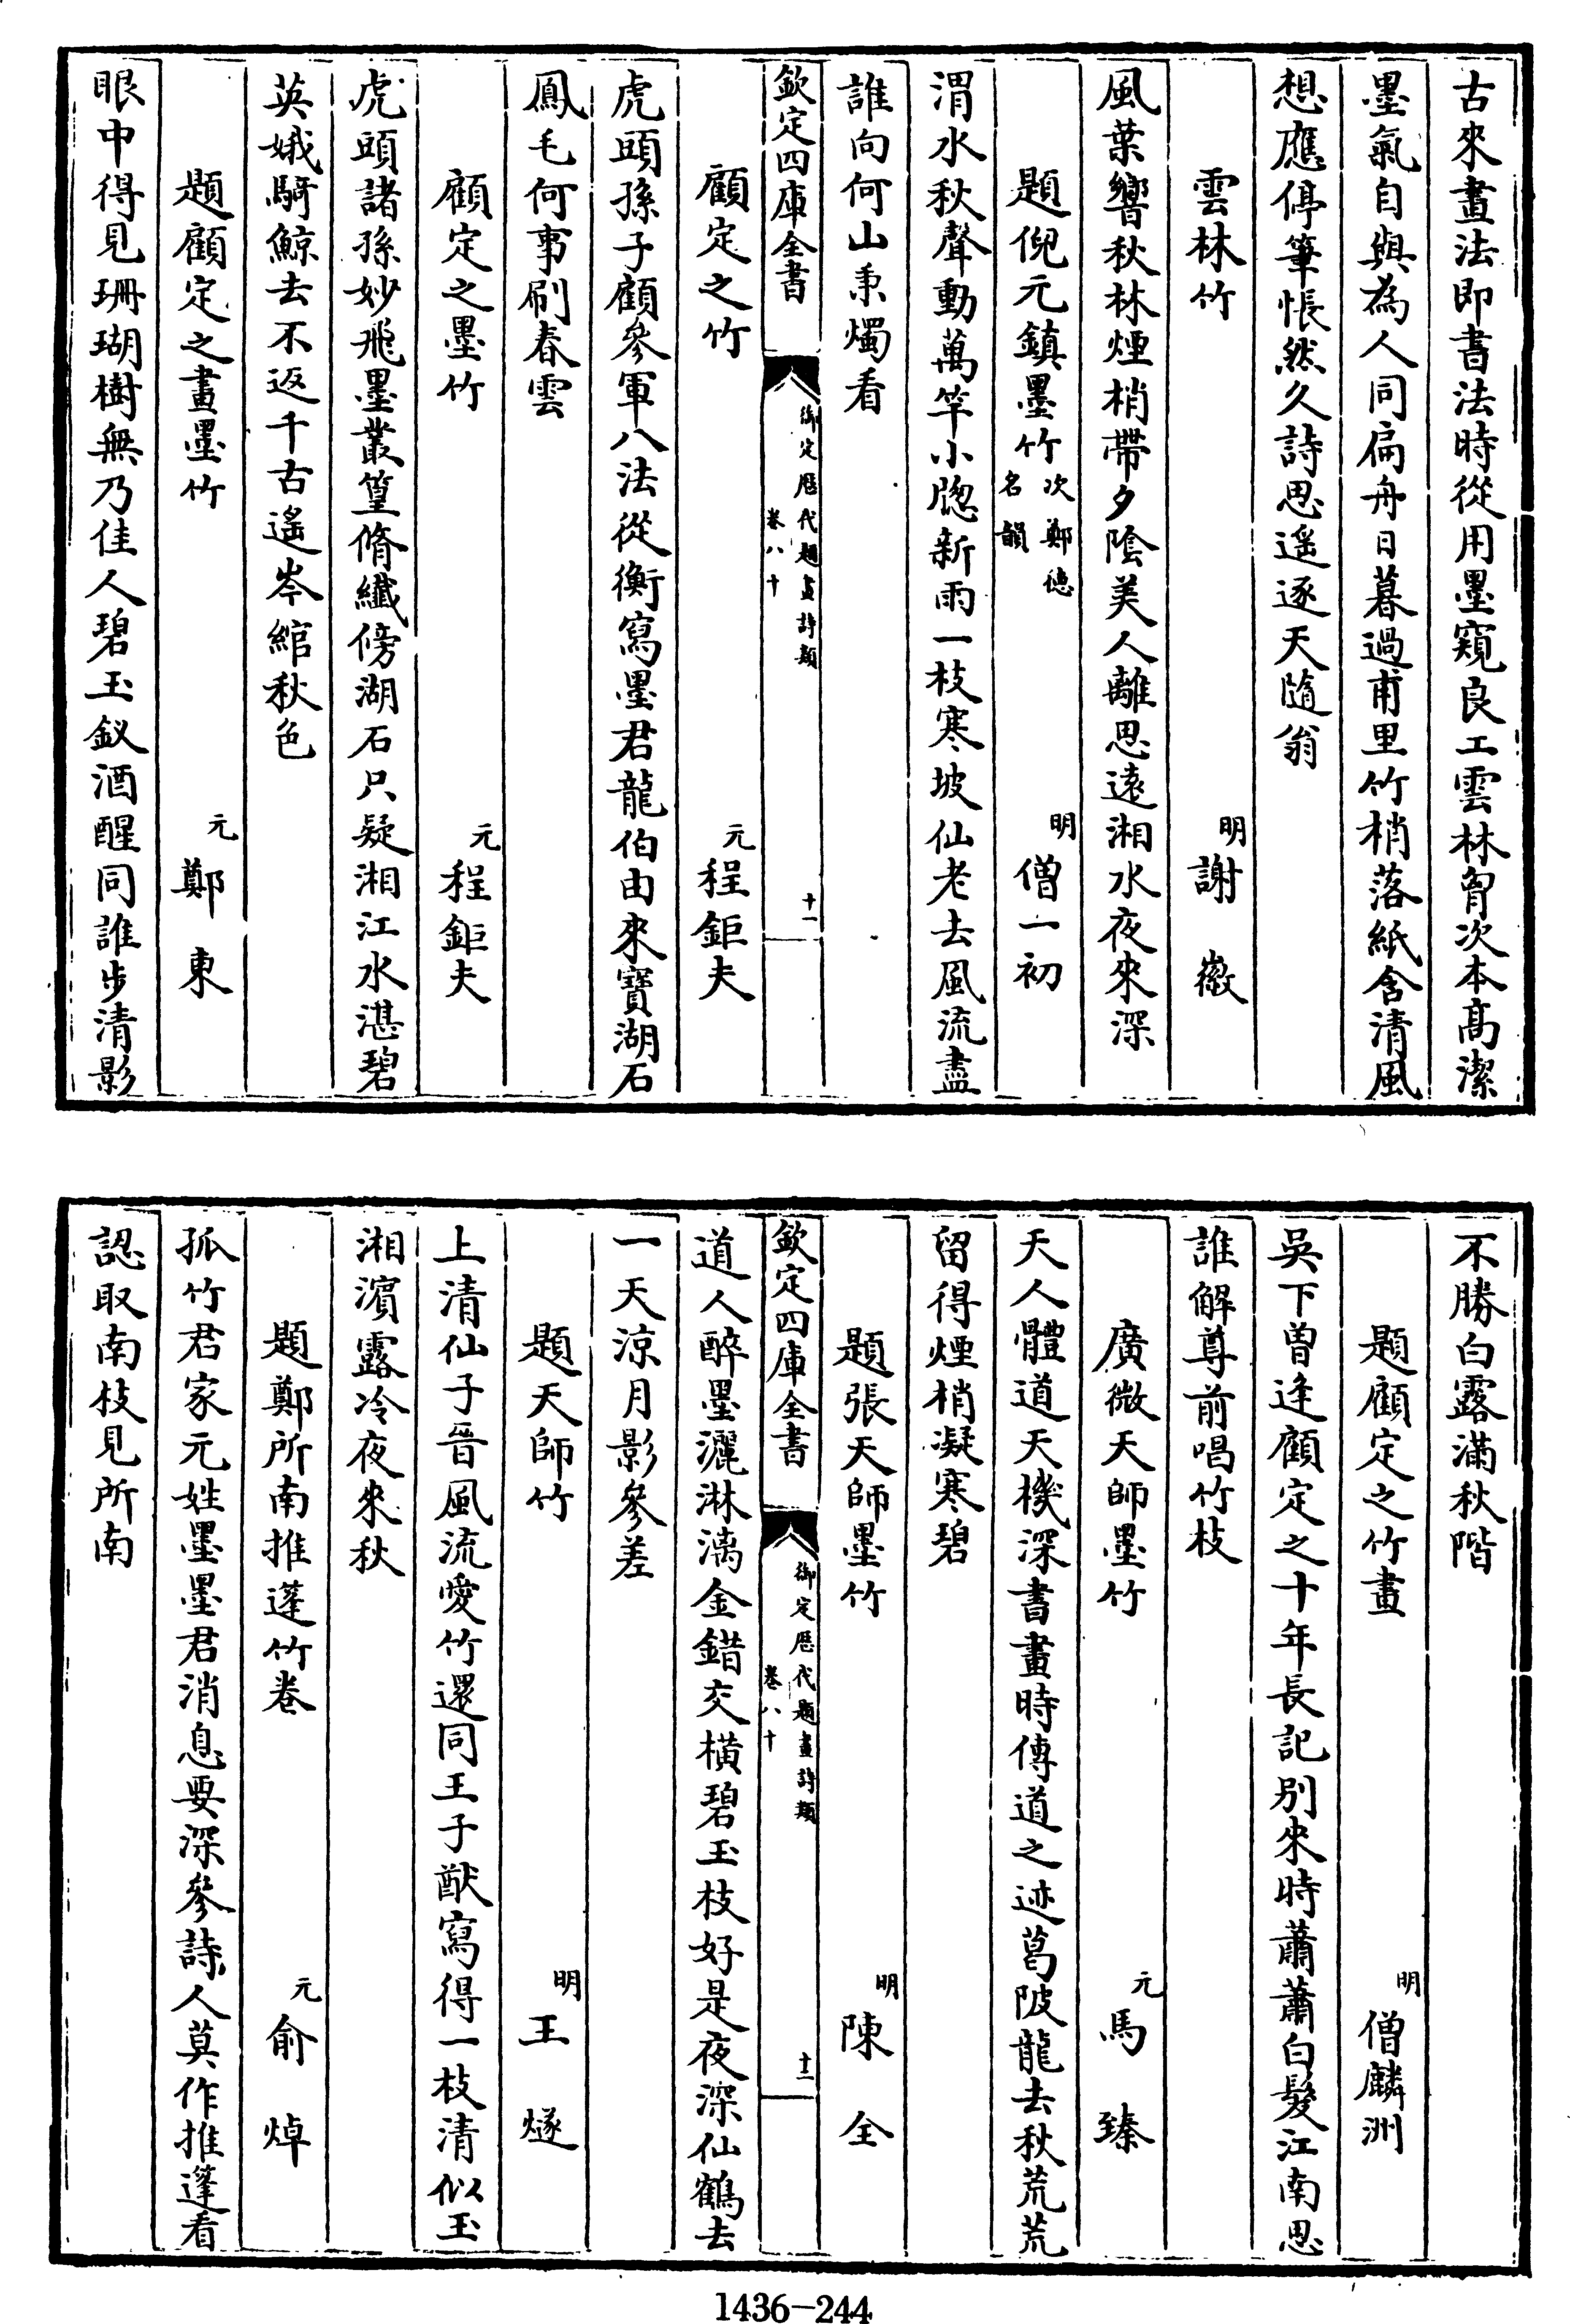 古來畫法即書法時從用墨窺良工雲林胷次本髙潔
墨氣自與為人同扁舟日暮過甫里竹梢落紙含清風
想應停筆悵然久詩思遥逐天隨翁
雲林竹
明謝徽
風葉響秋林煙梢帶夕陰美人離思遠湘水夜來深
題倪元鎮墨竹次鄭德名韻
明僧一初
渭水秋聲動萬竿小牕新雨一枝寒坡仙老去風流盡
誰向何山秉燭看
欽定四庫全書
御定歴代題畫詩類
卷八十
十一
顧定之竹
元程鉅夫
虎頭孫子顧參軍八法從衡寫墨君龍伯由來寶湖石
鳳毛何事刷春雲
顧定之墨竹
元程鉅夫
虎頭諸孫妙飛墨叢篁脩纖傍湖石只疑湘江水湛碧
英娥騎鯨去不返千古遙岑綰秋色
題顧定之畫墨竹
元鄭東
眼中得見珊瑚樹無乃佳人碧玉釵酒醒同誰步清影
不勝白露滿秋階
題顧定之竹畫
明僧麟洲
吳下曽逢顧定之十年長記别來時蕭蕭白髮江南思
誰解尊前唱竹枝
廣微天師墨竹
元馬臻
天人體道天機深書畫時傳道之迹葛陂龍去秋荒荒
留得煙梢凝寒碧
題張天師墨竹
明陳全
欽定四庫全書
御定歴代題畫詩類
卷八十
十二
道人醉墨灑淋漓金錯交橫碧玉枝好是夜深仙鶴去
一天涼月影參差
題天師竹
明王燧
上清仙子晉風流愛竹還同王子猷寫得一枝清似玉
湘濵露冷夜來秋
題鄭所南推蓬竹卷
元俞焯
孤竹君家元姓墨墨君消息要深參詩人莫作推蓬看
認取南枝見所南
1436-244